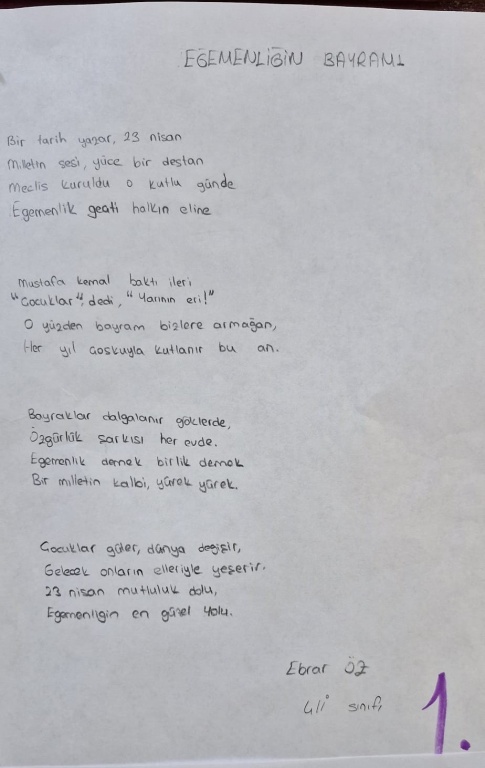 EGEMENLİĞİN BAYRAMI
Bir tarih yazar, 23 nisan
Milletin sesi, yüce bir destan
Meclis kuruldu o kutlu günde
Egemenlik geçti halkın eline
Mustafa kemal baktı ileri
"Çocuklar", dedi, "Yarının eri!"
O yüzden bayram bizlere armağan,
Her yıl coşkuyla kutlanır bu an.
Bayraklar dalgalanır göklerde,
Özgürlük şarkısı her evde.
Egemenlik demek birlik demek
Bir milletin kalbi, yürek yürek.
Çocuklar güler, dünya değişir,
Gelecek onların elleriyle yeşerir.
23 nisan mutluluk dolu,
Egemenliğin en güzel yolu.
Ebrar ÖZ
4/i sınıfı
1.